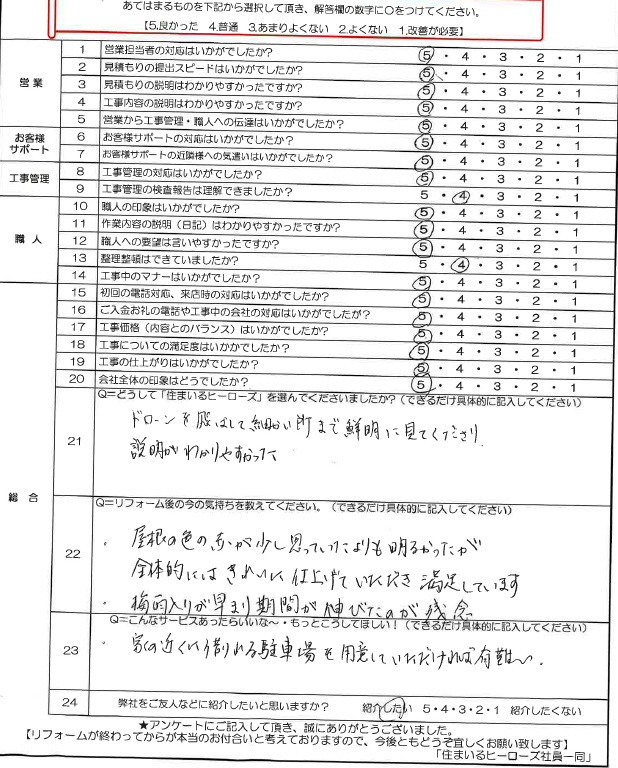 あてはまるものを下記から選択して頂き、解答欄の数字に○をつけてください。
【5.良かった 4.普通 3.あまりよくない 2.よくない 1.改善が必要】
営業
1 営業担当者の対応はいかがでしたか? 5・4・3・2・1
2 見積もりの提出スピードはいかがでしたか? 5・4・3・2・1
3 見積もりの説明はわかりやすかったですか? 5・4・3・2・1
4 工事内容の説明はわかりやすかったですか? 5・4・3・2・1
5 営業から工事管理・職人への伝達はいかがでしたか? 5・4・3・2・1
お客様
サポート
6 お客様サポートの対応はいかがでしたか? 5・4・3・2・1
7 お客様サポートの近隣様への気遣いはいかがでしたか? 5・4・3・2・1
工事管理
8 工事管理の対応はいかがでしたか? 5・4・3・2・1
9 工事管理の検査報告は理解できましたか? 5・4・3・2・1
職人
10 職人の印象はいかがでしたか? 5・4・3・2・1
11 作業内容の説明(日記)はわかりやすかったですか? 5・4・3・2・1
12 職人への要望は言いやすかったですか? 5・4・3・2・1
13 整理整頓はできていましたか? 5・4・3・2・1
14 工事中のマナーはいかがでしたか? 5・4・3・2・1
総合
15 初回の電話対応、来店時の対応はいかがでしたか? 5・4・3・2・1
16 ご入金お礼の電話や工事中の会社の対応はいかがでしたが? 5・4・3・2・1
17 工事価格(内容とのバランス)はいかがでしたか? 5・4・3・2・1
18 工事についての満足度はいかがでしたか? 5・4・3・2・1
19 工事の仕上がりはいかがでしたか? 5・4・3・2・1
20 会社全体の印象はどうでしたか? 5・4・3・2・1
21 Q=どうして「住まいるヒーローズ」を選んでくださいましたか?(できるだけ具体的に記入してください)
ドローンを飛ばして細かい所まで鮮明に見てくださり
説明がわかりやすかった
22 Q=リフォーム後の今の気持ちを教えてください。(できるだけ具体的に記入してください)
・屋根の色の赤が少し思っていたよりも明るかったが
全体的にはきれいに仕上げていただき満足しています
・梅雨入りが早まり期間が伸びたのが残念
23 Q=こんなサービスあったらいいな〜・もっとこうしてほしい!(できるだけ具体的に記入してください)
・家の近くに借りれる駐車場を用意していただければ有難い.
24 弊社をご友人などに紹介したいと思いますか? 紹介したい 5・4・3・2・1 紹介したくない
★アンケートにご記入して頂き、誠にありがとうございました。
【リフォームが終わってからが本当のお付合いと考えておりますので、今後ともどうぞ宜しくお願い致します】
「住まいるヒーローズ社員一同」